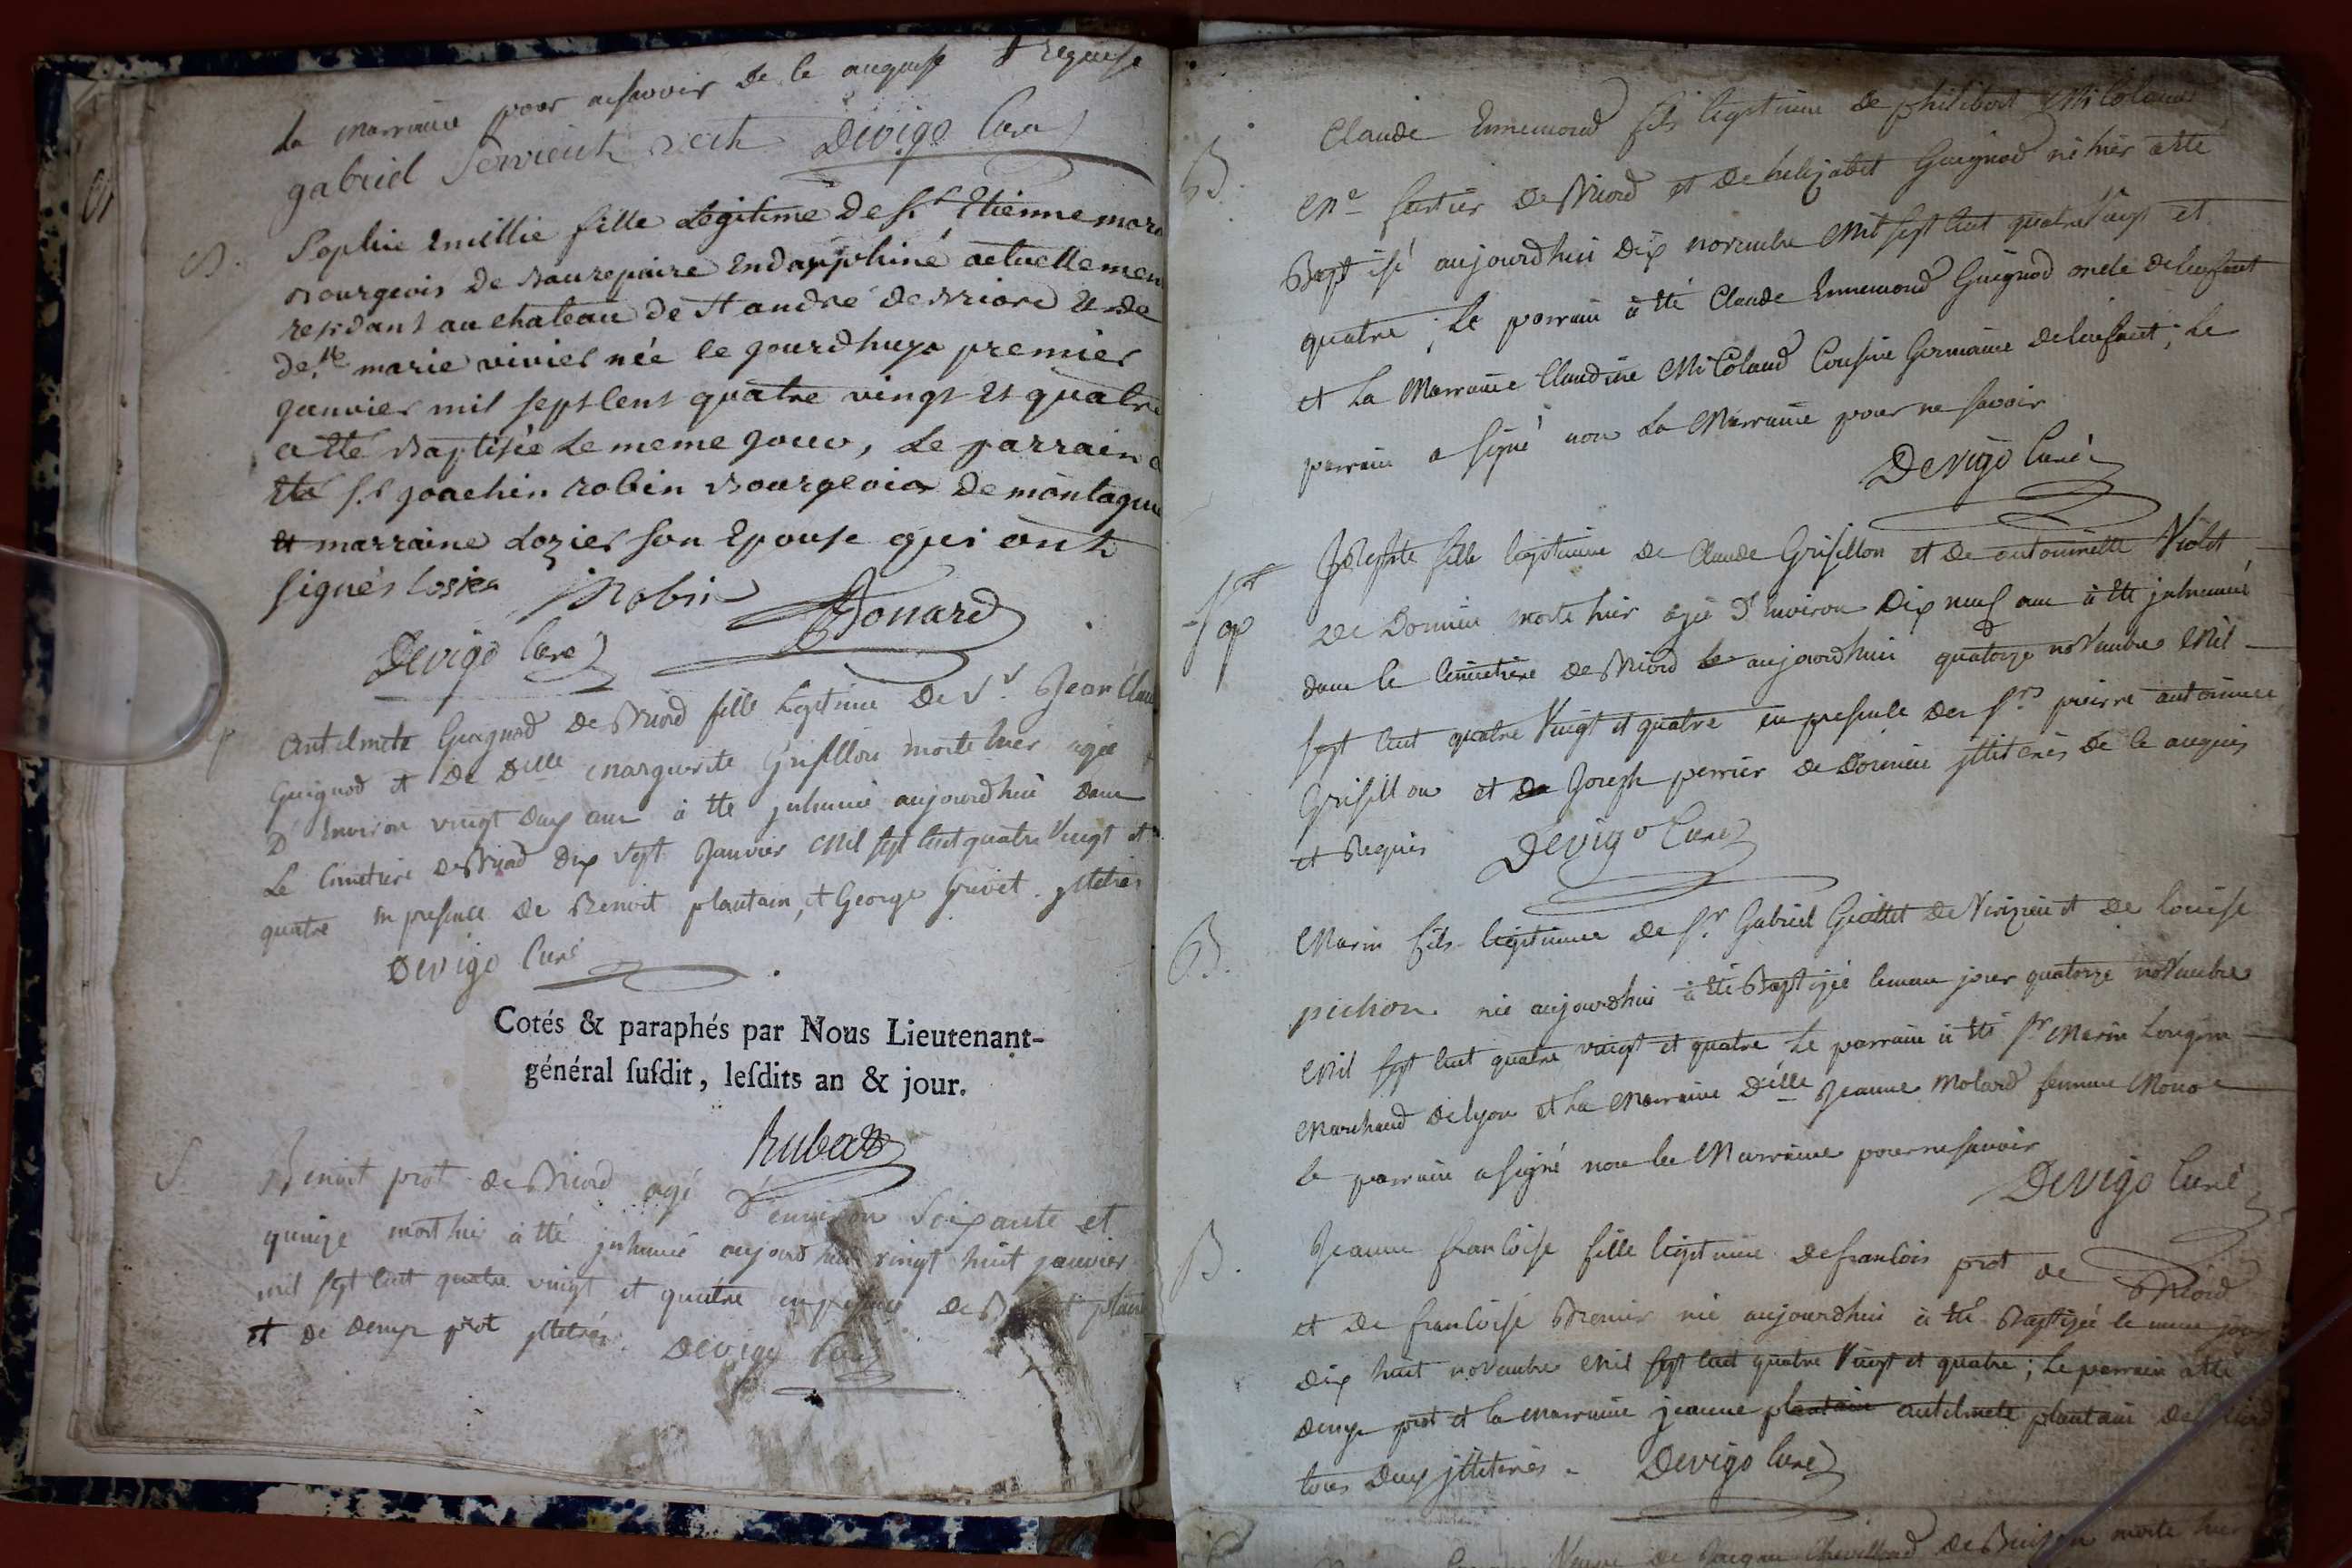 la marraine pour ne savoir de ce enquise & requise
gabriel Servient Devigo Curé
B.
Sophie Emillie fille Legitime de Sr Etienne
Bourgeois de Beaurepaire En dauphiné actuellement
residant au chateau de St andré de Briord et de
delle marie vivier née le jourdhuy premier
janvier mil sept Cent quatre vingt et quatre
a été Baptisée Le meme jour, Le parrain a
été Sr joachin robin Bourgeois de montagnieu
et marraine Lozier son Epouse qui ont
signés losier Robin
Devigo Curé Donard
antelmete Guignod de Briord fille legitime de Sr Jean Claude
Guignod et de Delle marguerite Grisillon morte hier agée
D'Environ vingt deux ans à été inhumé aujourd'hui dans
Le Cimetiere de Briord dix sept Janvier Mil sept Cent quatre Vingt et
quatre En presence de Benoit plantain, et George Grivet illiterés
Devigo Curé
Cotés & paraphés par Nous Lieutenant-
général susdit, lesdits an & jour.
S
Benoit prot de Briord agé d'environ soixante et
quinze mort hier à été inhumé aujourd'hui vingt huit janvier
mil sept Cent quatre vingt et quatre en presence de Benoit plantain
et de denys prot illiterés. Devigo Curé
B.
Claude Ennemond fils legitime de philibert Micoloud
Me de Briord et de helizabet Guignod né hier à été
Baptisé aujourdhui dix novembre Mil sept Cent quatre Vingt et
quatre; Le parrain à été Claude Ennemond Guignod oncle de lenfant
et La Marraine Claudine Micoloud Cousine Germaine de lenfant; Le
parrain a signé non La Marraine pour ne savoir
Devigo Curé
fille legitime de Claude Grisillon et de antoinette Violet
de Dornieu morte hier agée D'Environ Dix neuf ans à été inhumé
dans le Cimetiere de Briord le aujourdhui quatorze novembre Mil
sept Cent quatre Vingt et quatre en presence des Srs pierre antoinne
Grisillon et de Joseph perrier de Dornieu illiterés de ce enquis
et Requis Devigo Curé
B.
Marin fils legitime de Sr Gabriel Guillet de Virizieu et de louise
pichon né aujourdhui à été Baptizé le meme jour quatorze novembre
Mil sept Cent quatre vingt et quatre Le parrain à été Sr Marin
Marchand de lyon et La Marraine Delle Jeanne Molard femme
le parrain a signé non la Marraine pour ne savoir
Devigo Curé
B.
Jeanne francoise fille legitime de francois prot de Briord
et de francoise née aujourdhui à été Baptizée le meme jour
dix huit novembre Mil sept Cent quatre Vingt et quatre; Le parrain à été
denys prot et la marraine jeanne plantain antelmete plantain de Briord
tous deux illiterés. Devigo Curé
Veuve de Jacques Chevillard de morte hier